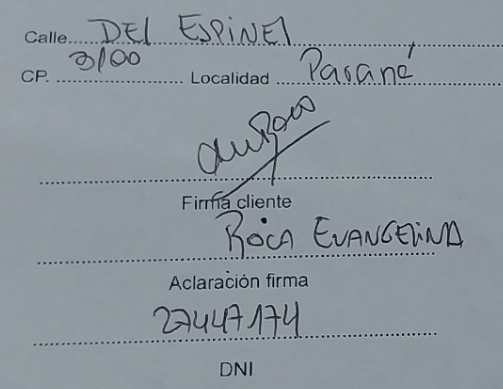 Calle DEl ESPINEl
CP. 3100 Localidad Parané
Firma cliente
ROCA EVANGELINA
Aclaración firma
27447174
DNI